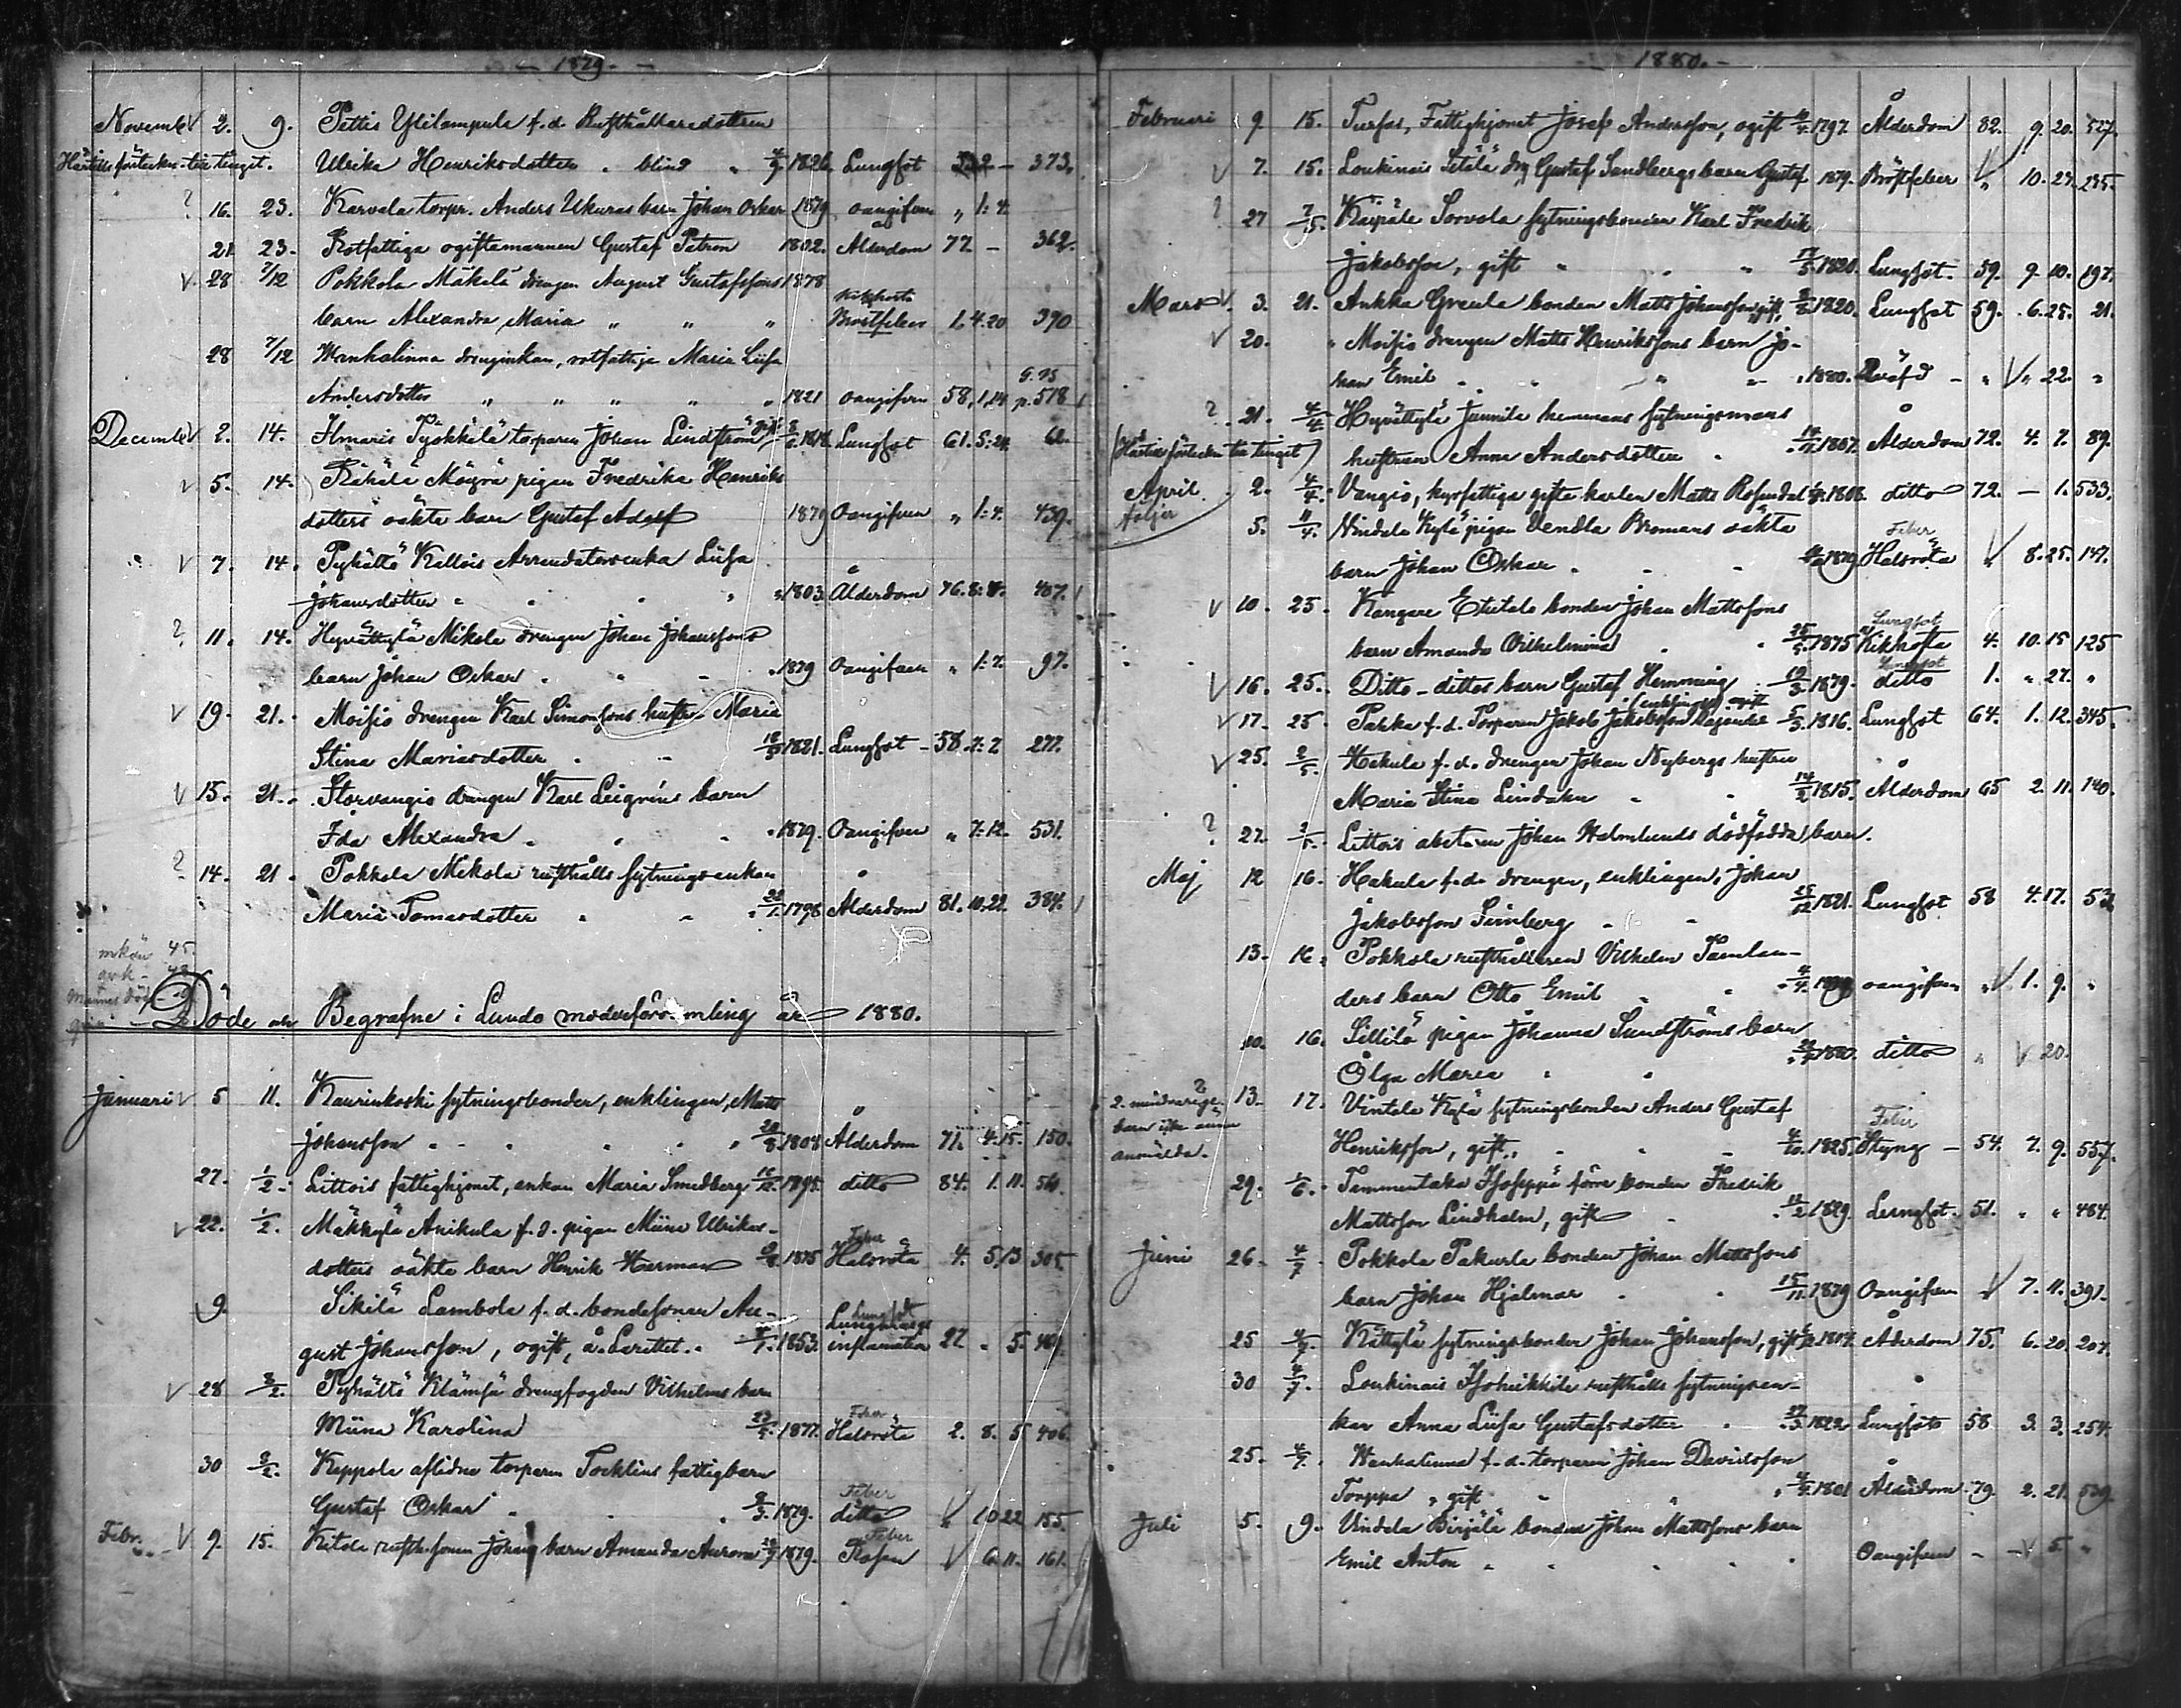 1879.
Novemb. 2. 9. Pettis Ylilampula f. d. Rusthållaredottren
Ulrika Henriksdotter blind 1826 Lungsot 373.
? 16. 23. Karvala torpr. Anders Ukuras barn Johan Oskar 1879 oangifven " 1. 4.
21. 23. Rotfattiga ogiftamannen Gustaf Petron 1802. Ålderdom 77 - 362.
V 28 7/12 Pokkola Mäkelä drengen August Gustafssons 1878
barn Alexandra Maria " " " Kikhosta Bröstfeber 1.4.20 390
28 7/12 Wanhalinna drenginkan, rotfattiga Maria Liisa
Andersdotter " " " " 1821 oangifven 58,1,14 p. 578
Decemb. V 2. 14. Ilmaris Pyökkilä torparen Johan Lindström gift 1818. Lungsot 61. 5. 24. 62.
V 5. 14. Räkälä Mäyrä pigan Fredrika Henriks
dotters oäkta barn Gustaf Adolf 1879 Oangifven " 1. 4. 439.
V 7. 14. Pyhältö Kallois Arrendatorsenka Liisa
Johansdotter " 1803. Ålderdom 76. 8. 407.
? 11. 14. Hyvättylä Mikola drengen Johan Johanssons
barn Johan Oskar 1879 Oangifven " 1. 7. 97.
V 19. 21. Moisio drengen Karl Simonssons hustru Maria
Stina Mariasdotter 1821. Lungsot - 58. 7. 7 277.
V 15. 21. Storvangio drengen Karl Leigréns barn
Ida Alexandra " 1879. Oangifven " 7. 12. 531.
? 14. 21. Pokkola Mikola rusthålls sytningsenkan
Maria Tomasdotter 1798 Ålderdom 81. 10. 22. 384.
mkön 45
qvk - 48
Döde och Begrafne i Lundo moderförsamling år 1880.
Januari V 5 11. Kaurinkoski sytningsbonden, enklingen, Matts
Johansson 1808 Ålderdom 71. 4. 15. 150.
27. 1/2. Littois fattighjonet, enkan Maria Smedberg 1795. ditto 84. 1. 11.
V 22. 1/2. Mäkkylä Anikula f. d. pigan Miina Ulrikas-
dotters oäkta barn Henrik Herman 1875 Feber Halsröta 4. 5. 13 305.
9. Sikilä Lambola f. d. bondesonen Au-
gust Johansson, ogift, å Larettet. 1853. Lungsot inflamation 27. " 5.
V 28 8/2. Pyhältö Klämsä drengfogden Vilhelms barn
Miina Karolina 1877. Feber Halsröta 2. 8. 5 406.
30 8/2. Keppola aflidne torparen Tocklins fattigbarn
Gustaf Oskar 9/3. 1879. Feber ditto 10 22 155.
Febr. V 9. 15. Kitola rusth. sonen Johans barn Amanda Aurora 1879. Feber Rosen 6. 11. 161.
1880.
Februari 9 15. Turfas, Fattighjonet Josef Andersson, ogift 1797. Ålderdom 82. 9. 20. 527.
V 7. 15. Loukinais Setälä drg Gustaf Sandbergs barn Gustaf 1879. Bröstfeber 10. 27. 235.
? 27 7/5. Kärpälä Sorvola sytningsbonden Karl Fredrik
Jakobsson, gift 1820. Lungsot. 59. 9. 10. 197.
Mars V 3. 21. Ankka Greula bonden Matts Johansson, gift 1820. Lungsot 59. 6. 25. 21.
V 20. " Moisio drengen Matts Henrikssons barn Jo-
han Emil 1880. Qväfd - " V " 22. "
? 21. 4/4. Hyvättylä Junnila hemmans sytningsmans
(Härtills förteckn. till tinget) hustrun Anna Andersdotter 1807. Ålderdom 72. 4. 7. 89.
April 2. 4/4. Vangio, kyrofattiga gifta karlen Matts Rosendal 1808. ditto 72. - 1. 533.
följer 5. 11/4. Vindala Kylä pigan Vendla Bromans oäkta
barn Johan Oskar 1879 Feber Halsröta 8. 25. 147.
V 10. 25. Kangare Etutalo bonden Johan Mattssons
barn Amanda Vilhelmina 1875 Lungsot Kikhosta 4. 10. 15 125
V 16. 25. Ditto - dittos barn Gustaf Hemming 19/3. 1879. ditto 1. " 27. "
V 17. 25. Pahka f. d. Torparen Jakob Jakobsson (enklingen) 5/3. 1816. Lungsot 64. 1. 12. 345.
V 25. 2/5. Hakula f. d. drengen Johan Nybergs hustru
Maria Stina Lindakn 14/2 1815. Ålderdom 65 2. 11. 140.
? 27. 2/5. Littois arbetaren Johan Malmlunds dödfödda barn.
Maj 12 16. Hakula f. d. drengen, enklingen, Johan
Jakobsson Simberg 25/12 1821. Lungsot 58 4. 17. 53.
13. 16. Pokkola rusthållaren Vilhelm Tamlan-
ders barn Otto Emil oangifven V 1. 9. "
10. 16. Sillilä pigan Johanna Sundströms barn
Olga Maria 1880. ditto " V 20.
2. mindreåriga barn icke ännu anmälda. 13. 17. Vintala Kylä sytningsbonden Anders Gustaf
Henriksson, gift 4/10. 1825. Feber Styng - 54. 7. 9. 557.
29. 1/6. Tammentaka Isoseppä förre bonden Fredrik
Mattsson Lindholm, gift 1829. Lungsot. 51. " " 484.
Juni 26. 4/7. Pokkola Pakurla bonden Johan Mattssons
barn Johan Hjalmar 15/11. 1879 Oangifven V 7. 11. 391.
25 4/7. Kättylä sytningsbonden Johan Johansson, gift 1804. Ålderdom 75. 6. 20. 207.
30 4/7. Loukinais Isoheikkilä rusthålls sytningsen-
kan Anna Liisa Gustafsdotter 27/3. 1822 Lungsot 58 3. 3. 254.
25. 4/7. Wanhalinna f. d. torparen Johan Davidsson
Torppa, gift 1801 Ålderdom. 79. 2. 21. 539.
Juli 5. 9. Vindala Birjälä bonden Johan Mattssons barn
Emil Anton Oangifven - - V 5. "